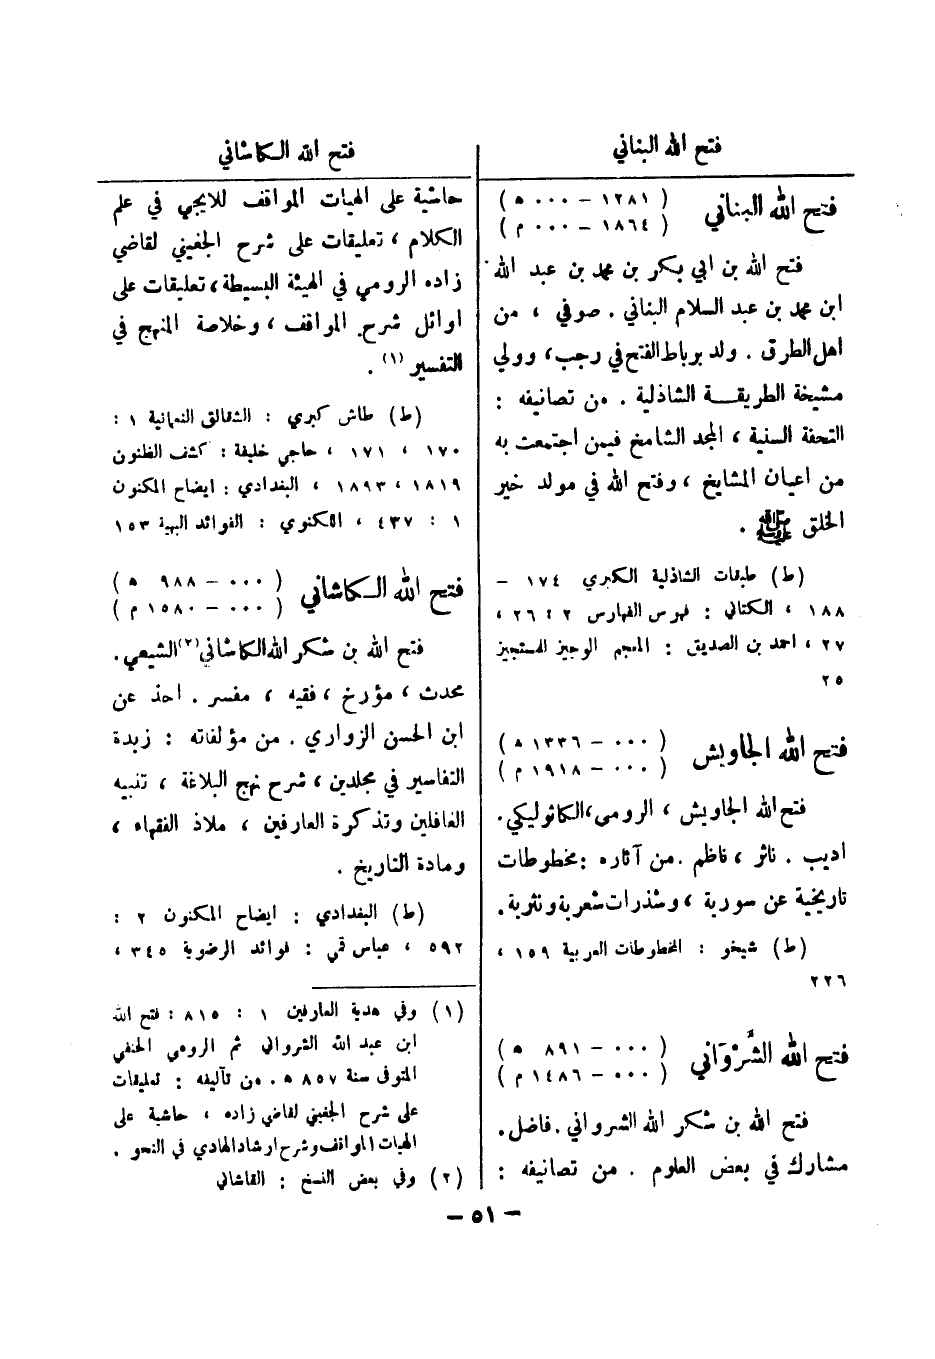 فتح الله البناني
فتح الله البناني
( ١٢٨١ – ٠٠٠ ه )
( ١٨٦٤ – ٠٠٠ م )
فتح الله بن ابي بكر بن محمد بن عبد الله
ابن محمد بن عبد السلام البناني . صوفي ، من
اهل الطرق . ولد برباط الفتح في رجب، وولي
مشيخة الطريقة الشاذلية . من تصانيفه :
التحفة السنية ، المجد الشامخ فيمن اجتمعت به
من اعيان المشايخ ، وفتح الله في مولد خير
الخلق ﷺ .
(ط) طبقات الشاذلية الكبرى ١٧٤ –
١٨٨ ، الكتاني : فهرس الفهارس ٢ : ٢٦٤ ،
٢٧ ، احمد بن الصديق : المعجم الوجيز للمستجيز
٢٥
فتح الله الجاويش
( ٠٠٠ – ١٣٣٦ ه )
( ٠٠٠ – ١٩١٨ م )
فتح الله الجاويش ، الرومي ، الكاثوليكي .
اديب . ناثر ، ناظم . من آثاره : مخطوطات
تاريخية عن سورية ، وشذرات شعرية ونثرية .
(ط) شيخو : المخطوطات العربية ١٥٩ ،
٢٢٦
فتح الله الشَّرْوَاني
( ٠٠٠ – ٨٩١ ه )
( ٠٠٠ – ١٤٨٦ م )
فتح الله بن شكر الله الشرواني . فاضل .
مشارك في بعض العلوم . من تصانيفه :
فتح الله الكاشاني
حاشية على الهيات المواقف للايجي في علم
الكلام ، تعليقات على شرح الجغميني لقاضي
زاده الرومي في الهيئة البسيطة ، تعليقات على
اوائل شرح المواقف ، وخلاصة المنهج في
التفسير (١) .
(ط) طاش كبري : الشقائق النعمانية ١ :
١٧٠ ، ١٧١ ، حاجي خليفة : كشف الظنون
١٨١٩ ، ١٨٩٣ ، البغدادي : ايضاح المكنون
١ : ٤٣٧ ، اللكنوي : الفوائد البهية ١٥٣
فتح الله الكاشاني
( ٠٠٠ – ٩٨٨ ه )
( ٠٠٠ – ١٥٨٠ م )
فتح الله بن شكر الله الكاشاني (٢) الشيعي .
محدث ، مؤرخ ، فقيه ، مفسر . اخذ عن
ابن الحسن الزواري . من مؤلفاته : زبدة
التفاسير في مجلدين ، شرح نهج البلاغة ، تنبيه
الغافلين وتذكرة العارفين ، ملاذ الفقهاء ،
ومادة التاريخ .
(ط) البغدادي : ايضاح المكنون ٢ :
٥٩٢ ، عباس قمي : فوائد الرضوية ٣٤٥ ،
(١) وفي هدية العارفين ١ : ٨١٥ : فتح الله
ابن عبد الله الشرواني ثم الرومي الحنفي
المتوفى سنة ٨٥٧ ه . من تآليفه : تعليقات
على شرح الجغميني لقاضي زاده ، حاشية على
الهيات المواقف وشرح ارشاد الهادي في النحو .
(٢) وفي بعض النسخ : القاشاني
– ٥١ –